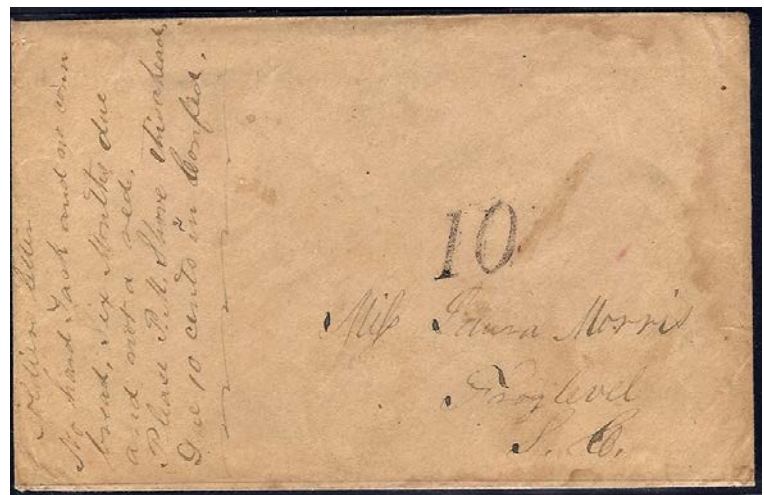 Soldiers letter
No hard Tack and no corn
bread, Six Months due
and not a red.
Please P.M. Shove this ahead,
Due 10 cents in Confed.
10
Miss Laura Morris
Froglevel
S. C.